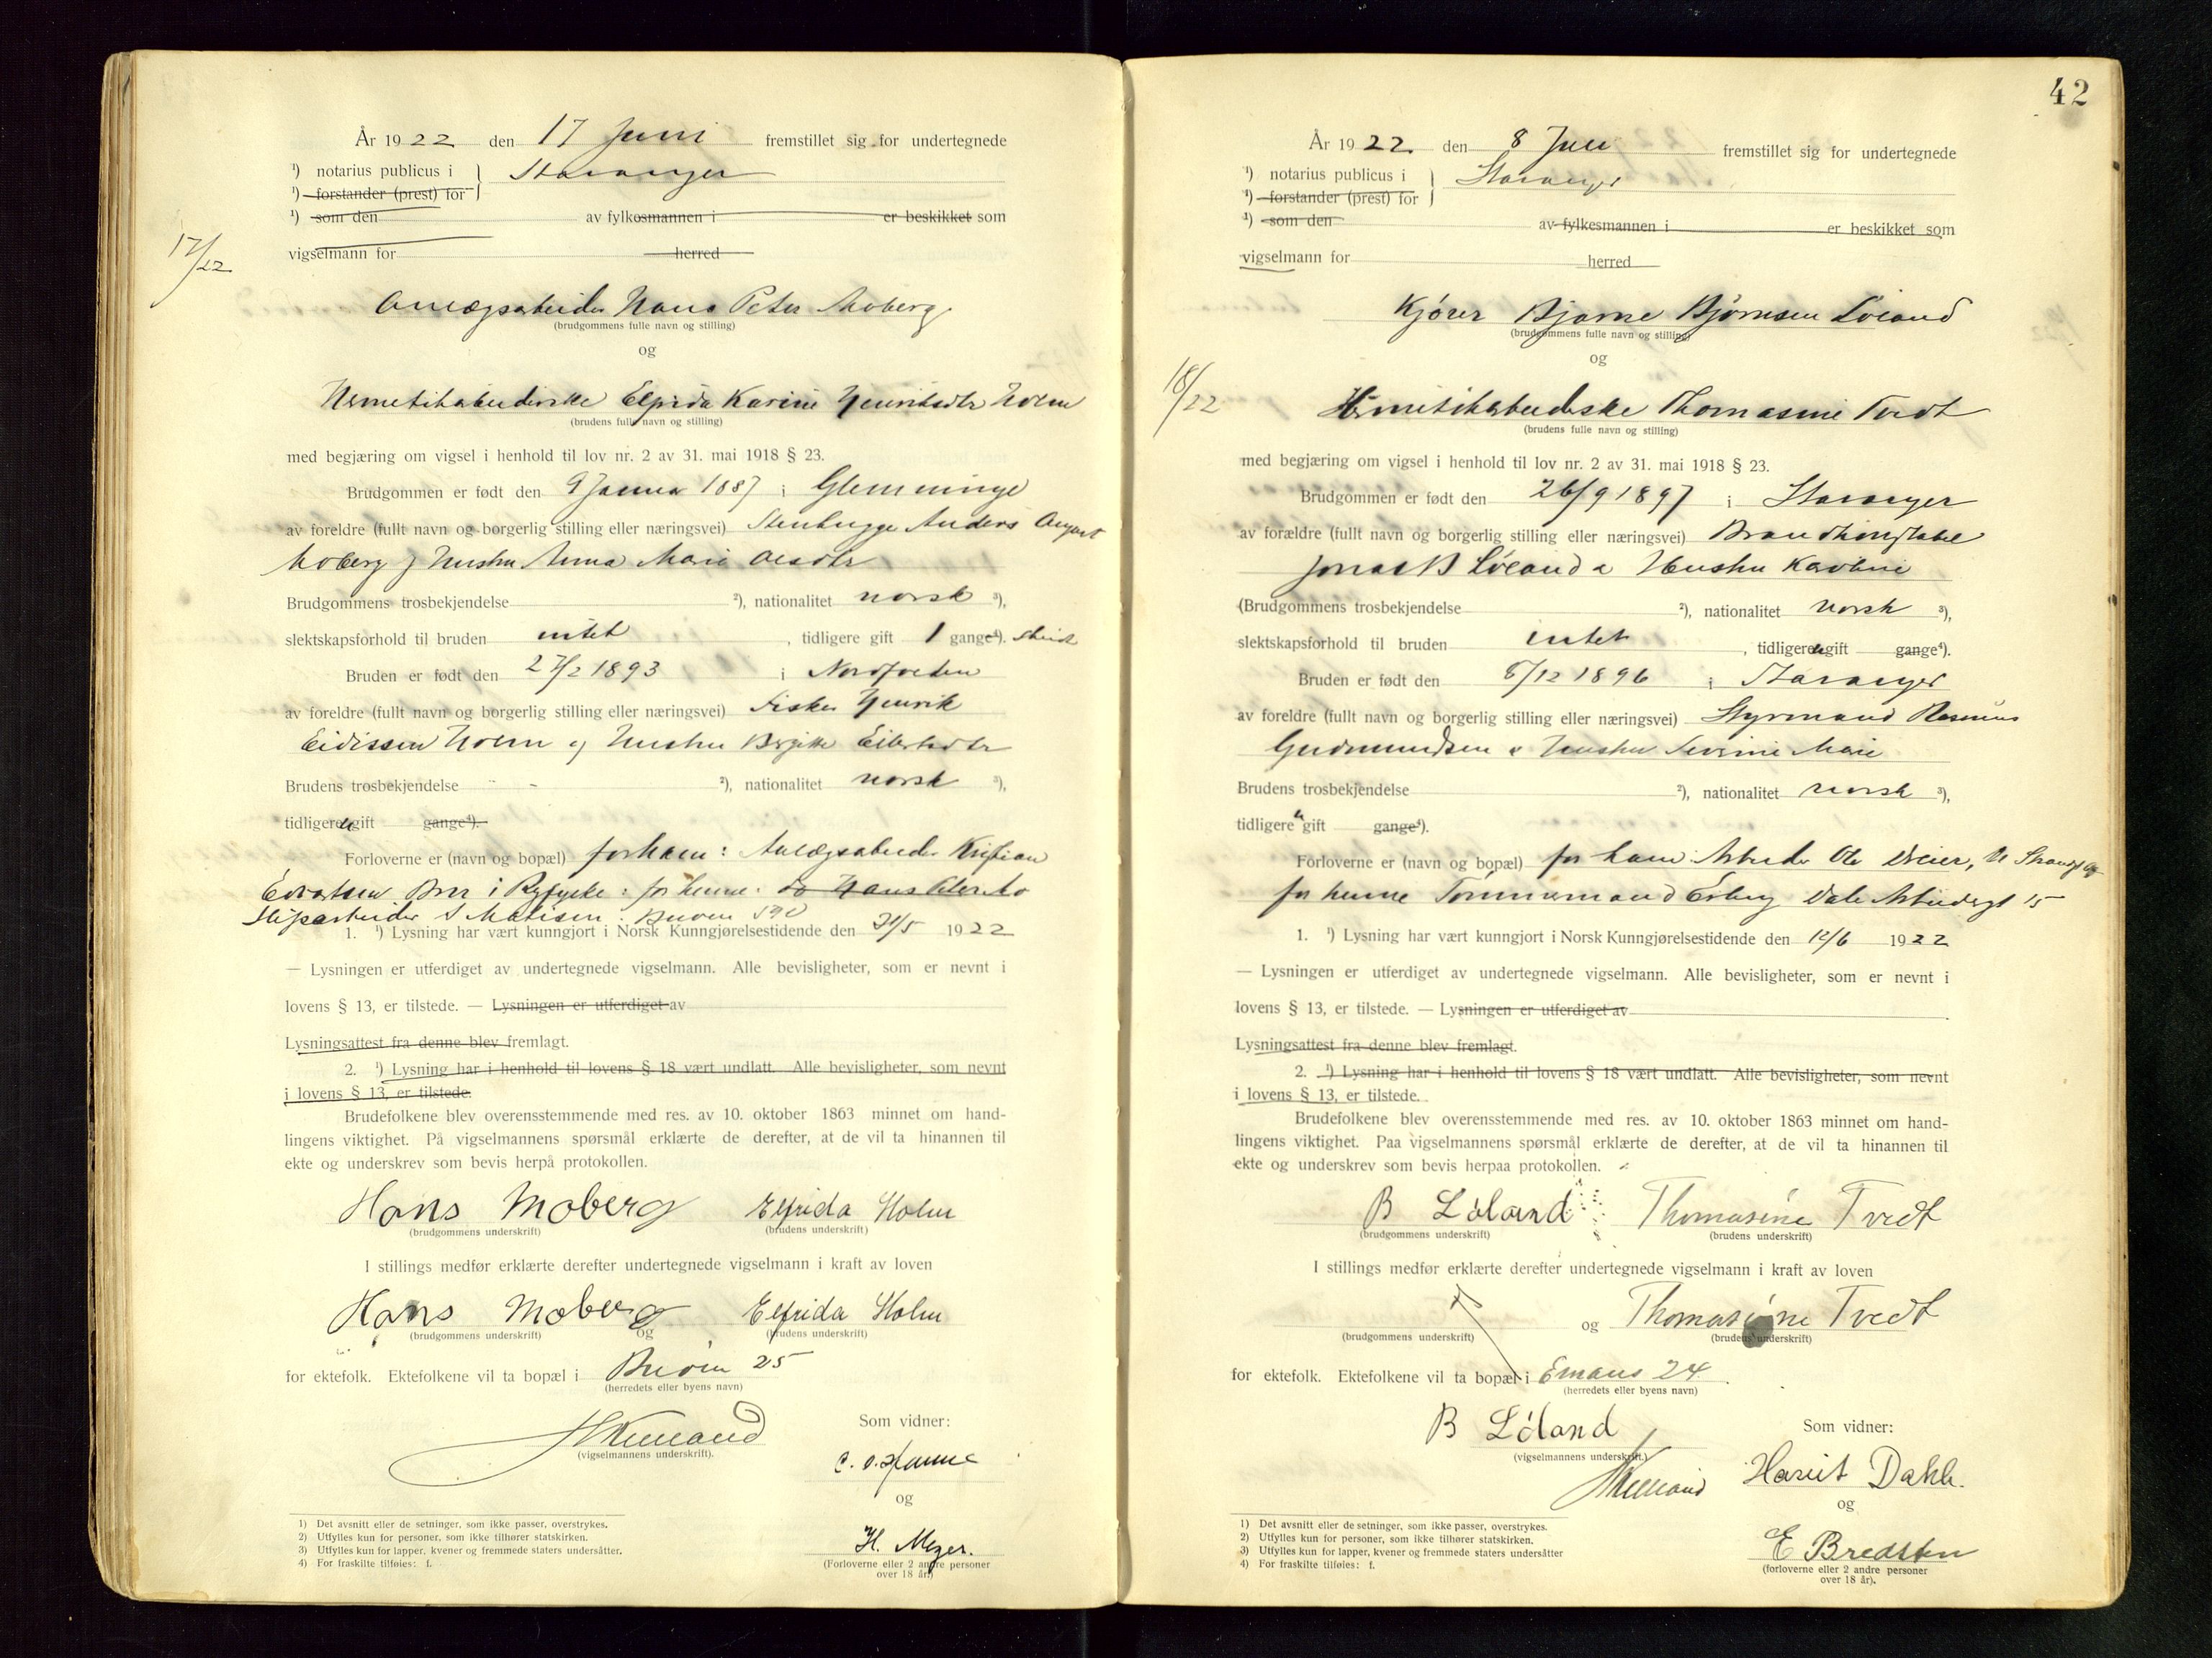 År 1922 den 17 Juni fremstillet sig for undertegnede
¹) notarius publicus i } Stavanger
¹) forstander (prest) for
¹) som den av fylkosmannen i er beskikket som
17/22
vigselmann for herred
Anlægsarbeider Hans Peter Moberg
(brudgommens fulle navn og stilling)
og
Hermetikarbeiderske Elfrida Karine Henriksdtr Holm
(brudens fulle navn og stilling)
med begjæring om vigsel i henhold til lov nr. 2 av 31. mai 1918 § 23.
Brudgommen er født den 9 Janua 1887 i Glemminge
av foreldre (fullt navn og borgerlig stilling eller næringsvei) Stenhugge Anders August
Moberg og Hustru Anna Marie Olsdtr
Brudgommens trosbekjendelse ²), nationalitet norsk ³),
slektskapsforhold til bruden intet , tidligere gift 1 gange⁴).
Bruden er født den 27/2 1893 i Nordfolden
av foreldre (fullt navn og borgerlig stilling eller næringsvei) Fisker Henrik
Eidissen Holm og Hustru Bergitte
Brudens trosbekjendelse - ²), nationalitet norsk ³),
tidligere ei gift gange⁴).
Forloverne er (navn og bopæl) for ham: Anlægsarbeider Kristian
i Ryfylke: for henne: Hans Peter Mo
Sliparbeider S Matisen.
1. ¹) Lysning har vært kunngjort i Norsk Kunngjørelsestidende den 31/5 1922
— Lysningen er utferdiget av undertegnede vigselmann. Alle bevisligheter, som er nevnt i
lovens § 13, er tilstede. — Lysningen er utferdiget av
Lysningsattest fra denne blev fremlagt.
2. ¹) Lysning har i henhold til lovens § 18 vært undlatt. Alle bevisligheter, som nevnt
i lovens § 13, er tilstede.
Brudefolkene blev overensstemmende med res. av 10. oktober 1863 minnet om hand-
lingens viktighet. På vigselmannens spørsmål erklærte de derefter, at de vil ta hinannen til
ekte og underskrev som bevis herpå protokollen.
Hans Moberg Elfrida Holm
(brudgommens underskrift) (brudens underskrift)
I stillings medfør erklærte derefter undertegnede vigselmann i kraft av loven
Hans Moberg Elfrida Holm
(brudgommens underskrift) og (brudens underskrift)
for ektefolk. Ektefolkene vil ta bopæl i 25
(herredets eller byens navn)
Som vidner:
(vigselmannens underskrift).
og
H. Meyer.
(Forloverne eller 2 andre personer
over 18 år.)
1) Det avsnitt eller de setninger, som ikke passer, overstrykes.
2) Utfylles kun for personer, som ikke tilhører statskirken.
3) Utfylles kun for lapper, kvener og fremmede staters undersåtter.
4) For fraskilte tilføies: f.
42
År 1922 den 8 Juli fremstillet sig for undertegnede
¹) notarius publicus i } Stavanger
¹) forstander (prest) for
¹) som den av fylkesmannen i er beskikket som
vigselmann for herred
Kjører Bjarne Bjørnsen Løland
(brudgommens fulle navn og stilling)
og
18/22
Hermetikarbeiderske Thomasine Tvedt
(brudens fulle navn og stilling)
med begjæring om vigsel i henhold til lov nr. 2 av 31. mai 1918 § 23.
Brudgommen er født den 26/9 1897 i Stavanger
av forældre (fullt navn og borgerlig stilling eller næringsvei) Brandkonstabel
Jonas B Løland & Hustru Karoline
(Brudgommens trosbekjendelse ²), nationalitet norsk ³),
slektskapsforhold til bruden intet , tidligere ei gift gange⁴).
Bruden er født den 8/12 1896 i Stavanger
av foreldre (fullt navn og borgerlig stilling eller næringsvei) Styrmand Rasmus
Gudmundsen & Hustru Serine Marie
Brudens trosbekjendelse ²), nationalitet norsk ³),
tidligere ei gift gange⁴).
Forloverne er (navn og bopæl) for ham Arbeider Ole Dreier,
for henne Tømmermand Esberg Dale Arbeidergt 15
1. ¹) Lysning har vært kunngjort i Norsk Kunngjørelsestidende den 12/6 1922
— Lysningen er utferdiget av undertegnede vigselmann. Alle bevisligheter, som er nevnt i
lovens § 13, er tilstede. — Lysningen er utferdiget av
Lysningsattest fra denne blev fremlagt.
2. ¹) Lysning har i henhold til lovens § 18 vært undlatt. Alle bevisligheter, som nevnt
i lovens § 13, er tilstede.
Brudefolkene blev overensstemmende med res. av 10. oktober 1863 minnet om hand-
lingens viktighet. Paa vigselmannens spørsmål erklærte de derefter, at de vil ta hinannen til
ekte og underskrev som bevis herpaa protokollen.
B Løland Thomasine Tvedt
(brudgommens underskrift) (brudens underskrift)
I stillings medfør erklærte derefter undertegnede vigselmann i kraft av loven
og Thomasine Tvedt
(brudgommens underskrift) (brudens underskrift)
for ektefolk. Ektefolkene vil ta bopæl i Emaus 24
(herredets eller byens navn)
B Løland Som vidner:
(vigselmannens underskrift.)
Harriet Dahle.
og
E Bredsten
(forloverne eller 2 andre personer
over 18 år).
1) Det avsnitt eller de setninger, som ikke passer, overstrykes.
2) Utfylles kun for personer, som ikke tilhører statskirken.
3) Utfylles kun for lapper, kvener og fremmede staters undersåtter
4) For fraskilte tilføies: f.